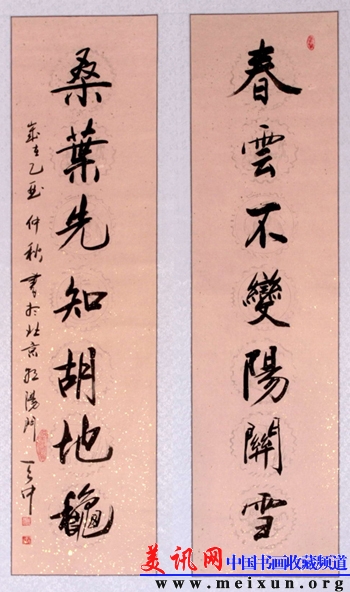 春雲不變陽關雪
桑葉先知胡地龝
歲在乙酉仲秋書於北京陽門
美讯网 中国书画收藏频道
www.meixun.org